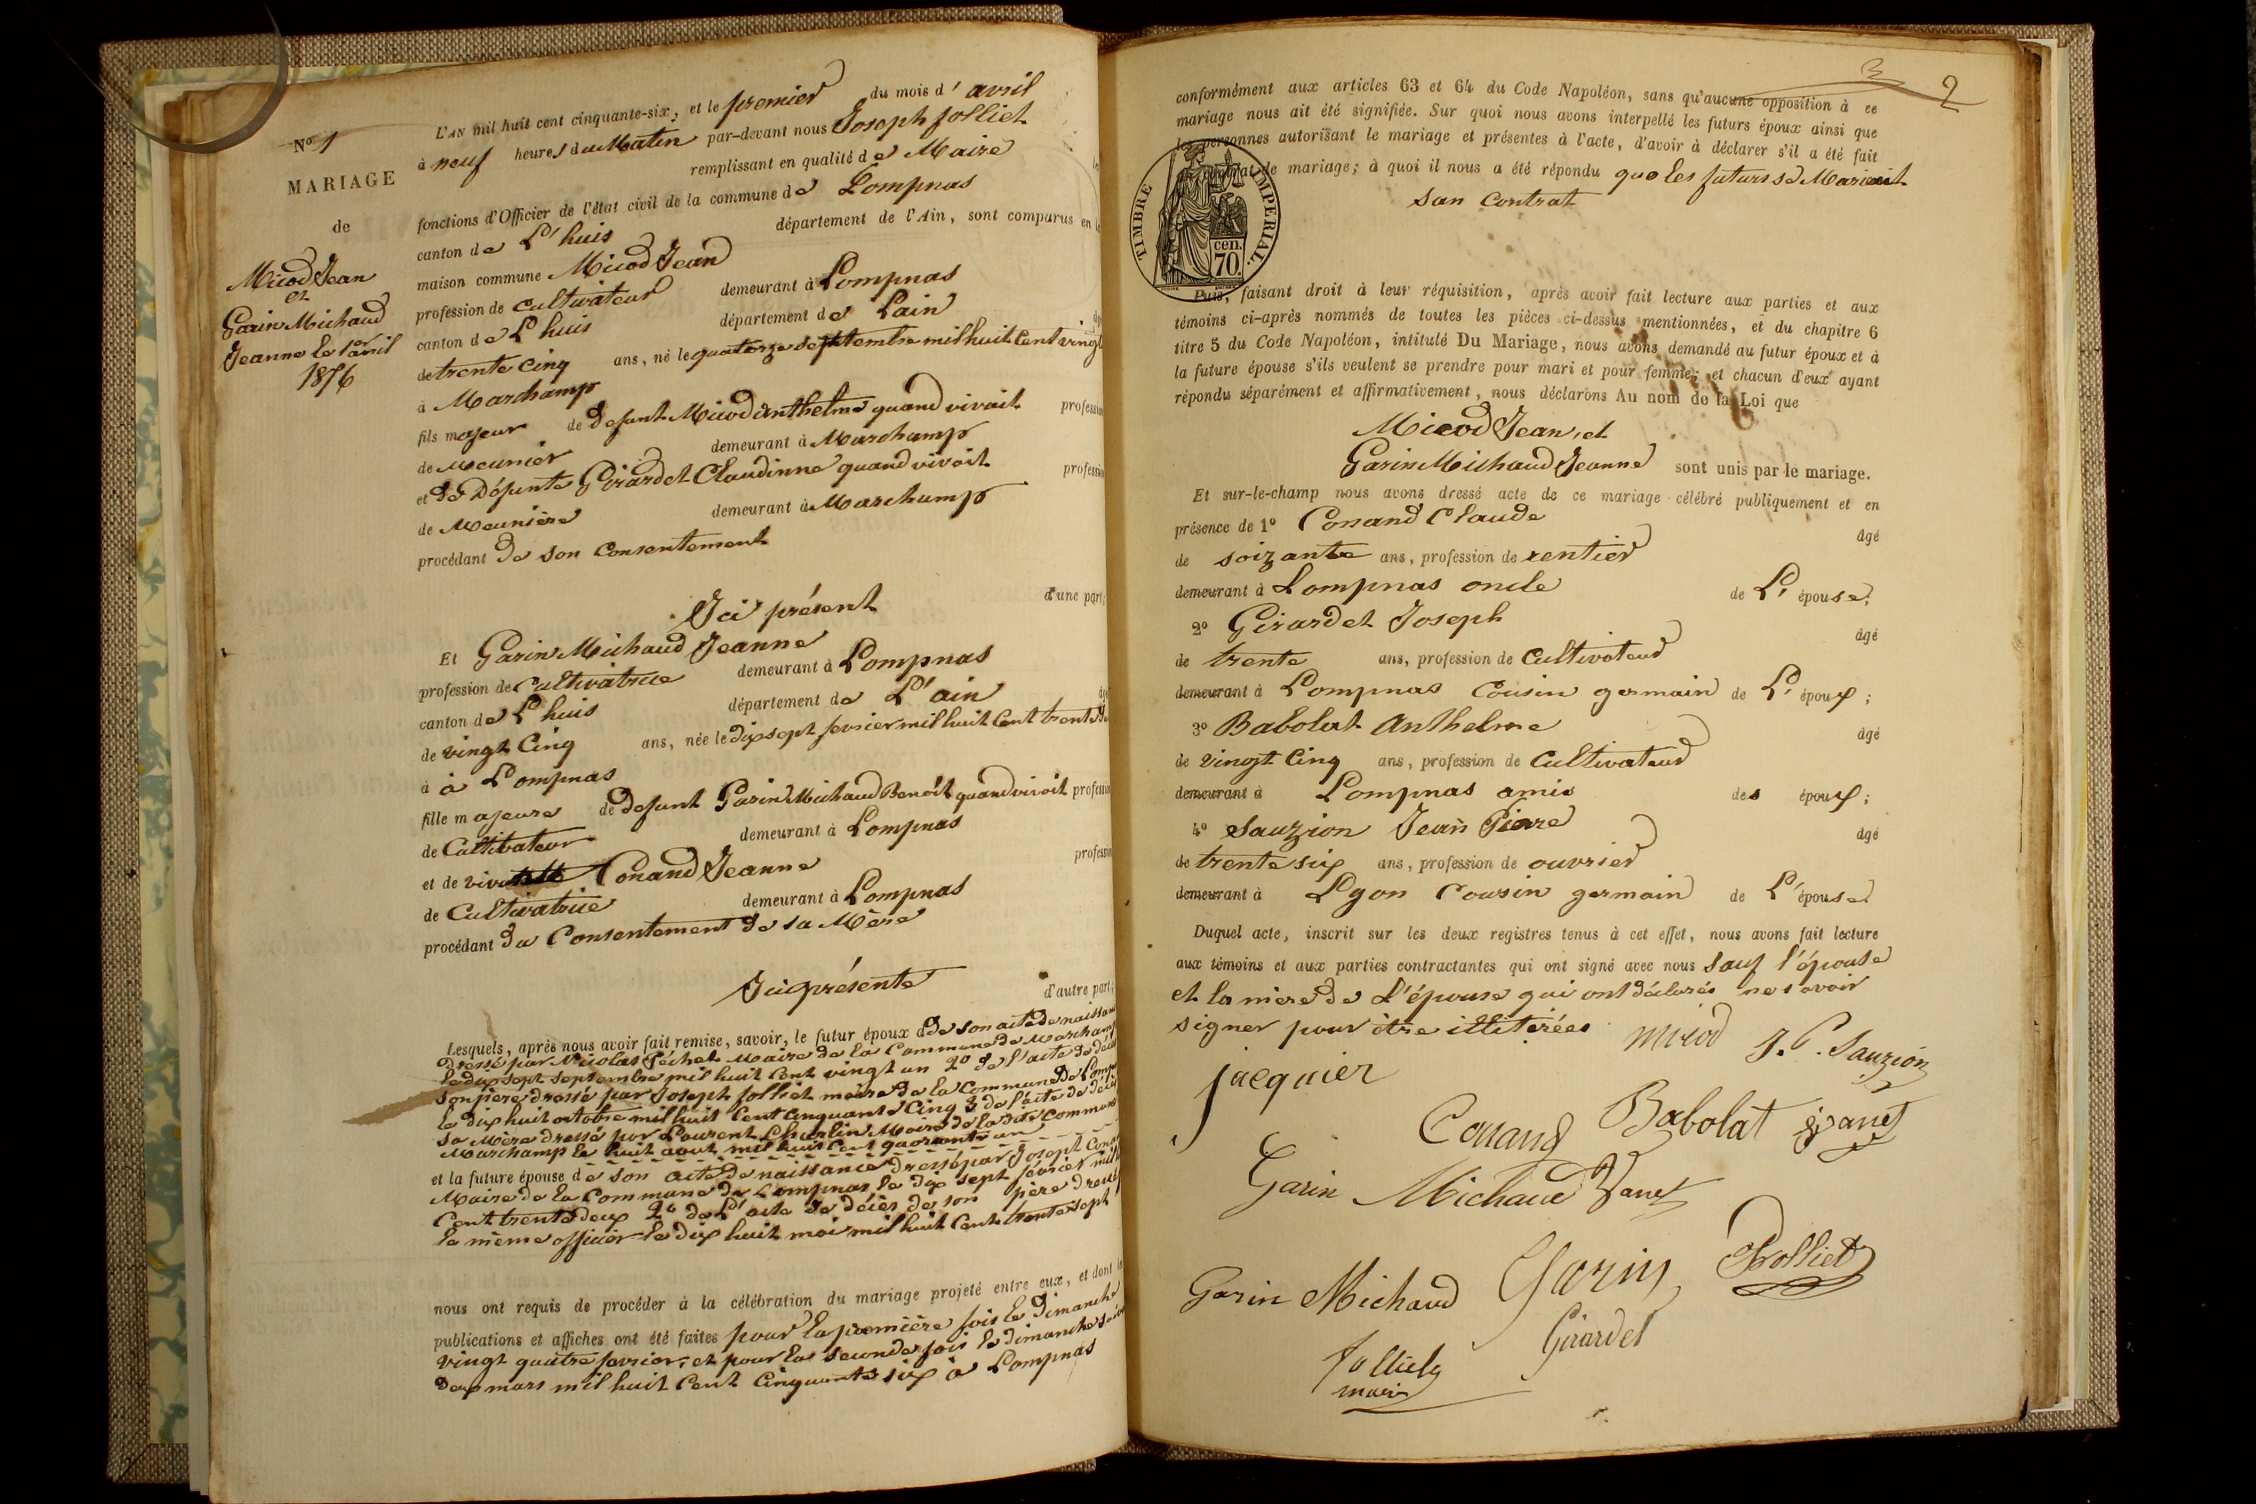 No 1
MARIAGE
de
Micod Jean
et
Garin Michaud
Jeanne le 1er avril
1856
L'AN mil huit cent cinquante-six, et le premier du mois d' avril
à neuf heures du Matin par-devant nous Joseph folliet
remplissant en qualité de Maire
fonctions d'Officier de l'état civil de la commune de Lompnas
canton de L'huis département de l'Ain, sont comparus en
maison commune Micod Jean
profession de Cultivateur demeurant à Lompnas
canton de Lhuis département de Lain
de trente Cinq ans, né le quatorze septembre mil huit Cent vingt
à Marchamp
fils majeur de defunt Micod anthelme quand vivait profession
de Meunier demeurant à Marchamp
et de Défunte Girardet Claudinne quand vivoit profession
de Meunière demeurant à Marchamp
procédant de son Consentement
d'une part;
Ici présent
Et Garin Michaud Jeanne
profession de Cultivatrice demeurant à Lompnas
canton de Lhuis département de L'ain
de vingt Cinq ans, née le dix sept fevrier mil huit Cent trente
à à Lompnas
fille majeure de defunt Garin Michaud Benoît quand vivoit profession
de Cultivateur demeurant à Lompnas
et de Conand Jeanne profession
de Cultivatrice demeurant à Lompnas
procédant du Consentement de sa Mère
Ici présente
d'autre part;
Lesquels, après nous avoir fait remise, savoir, le futur époux de son acte de naissance
dressé par Nicolas Péchet Maire de la Commune de Marchamp
le dix sept septembre mil huit Cent vingt un 2° de l'acte de décès
son père dressé par Joseph folliet maire de la Commune de Lompnas
le dix huit octobre mil huit Cent Cinquante Cinq 3 de l'acte de décès
sa Mère dressé par Laurent Maire de la dite Commune
Marchamp le huit aout mil huit Cent quarante un
et la future épouse de son acte de naissance dressé par Joseph
Maire de la Commune de Lompnas le dix sept février mil
Cent trente deux 2° de L'acte de décès de son père dressé
le même officier le dix huit mai mil huit Cent trente sept
nous ont requis de procéder à la célébration du mariage projeté entre eux, et dont
publications et affiches ont été faites pour la première fois le Dimanche
vingt quatre fevrier, et pour la seconde fois le dimanche
deux mars mil huit Cent Cinquante six à Lompnas
2
conformément aux articles 63 et 64 du Code Napoléon, sans qu'aucune opposition à ce
mariage nous ait été signifiée. Sur quoi nous avons interpellé les futurs époux ainsi que
les personnes autorisant le mariage et présentes à l'acte, d'avoir à déclarer s'il a été fait
contrat de mariage; à quoi il nous a été répondu que les futurs se Marient
san Contrat
TIMBRE IMPERIAL.
cen.
70.
Puis, faisant droit à leur réquisition, après avoir fait lecture aux parties et aux
témoins ci-après nommés de toutes les pièces ci-dessus mentionnées, et du chapitre 6
titre 5 du Code Napoléon, intitulé Du Mariage, nous avons demandé au futur époux et à
la future épouse s'ils veulent se prendre pour mari et pour femme; et chacun d'eux ayant
répondu séparément et affirmativement, nous déclarons Au nom de la Loi que
Micod Jean, et
Garin Michaud Jeanne sont unis par le mariage.
Et sur-le-champ nous avons dressé acte de ce mariage célébré publiquement et en
présence de 1° Conand Claude âgé
de soizante ans, profession de rentier
demeurant à Lompnas oncle de L' épouse;
2° Girardet Joseph âgé
de trente ans, profession de Cultivateur
demeurant à Lompnas Cousin germain de L' époux;
3° Babolat Anthelme âgé
de vingt Cinq ans, profession de Cultivateur
demeurant à Lompnas amis des époux;
4° Sauzion Jean Pierre âgé
de trente six ans, profession de ouvrier
demeurant à Lyon Cousin germain de L'épouse
Duquel acte, inscrit sur les deux registres tenus à cet effet, nous avons fait lecture
aux témoins et aux parties contractantes qui ont signé avec nous sauf l'épouse
et la mère de L'épouse qui ont déclarés ne savoir
signer pour être illitérées
micod J. P. Sauzion
jacquier
Conand Babolat
Garin Michaud
Garin Michaud Garin Trolliet
Girardet
folliet
maire